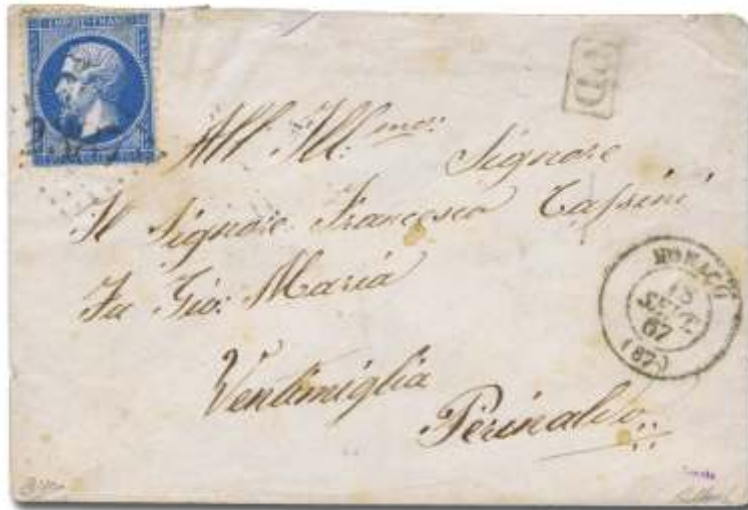 EMPIRE FRANC
PD
All' Ill.mo: Signore
Il Signore Francesco Cassini
Fu Gio: Maria
Ventimiglia
Perinaldo
MONACO
15
SEPT.
67
(87)